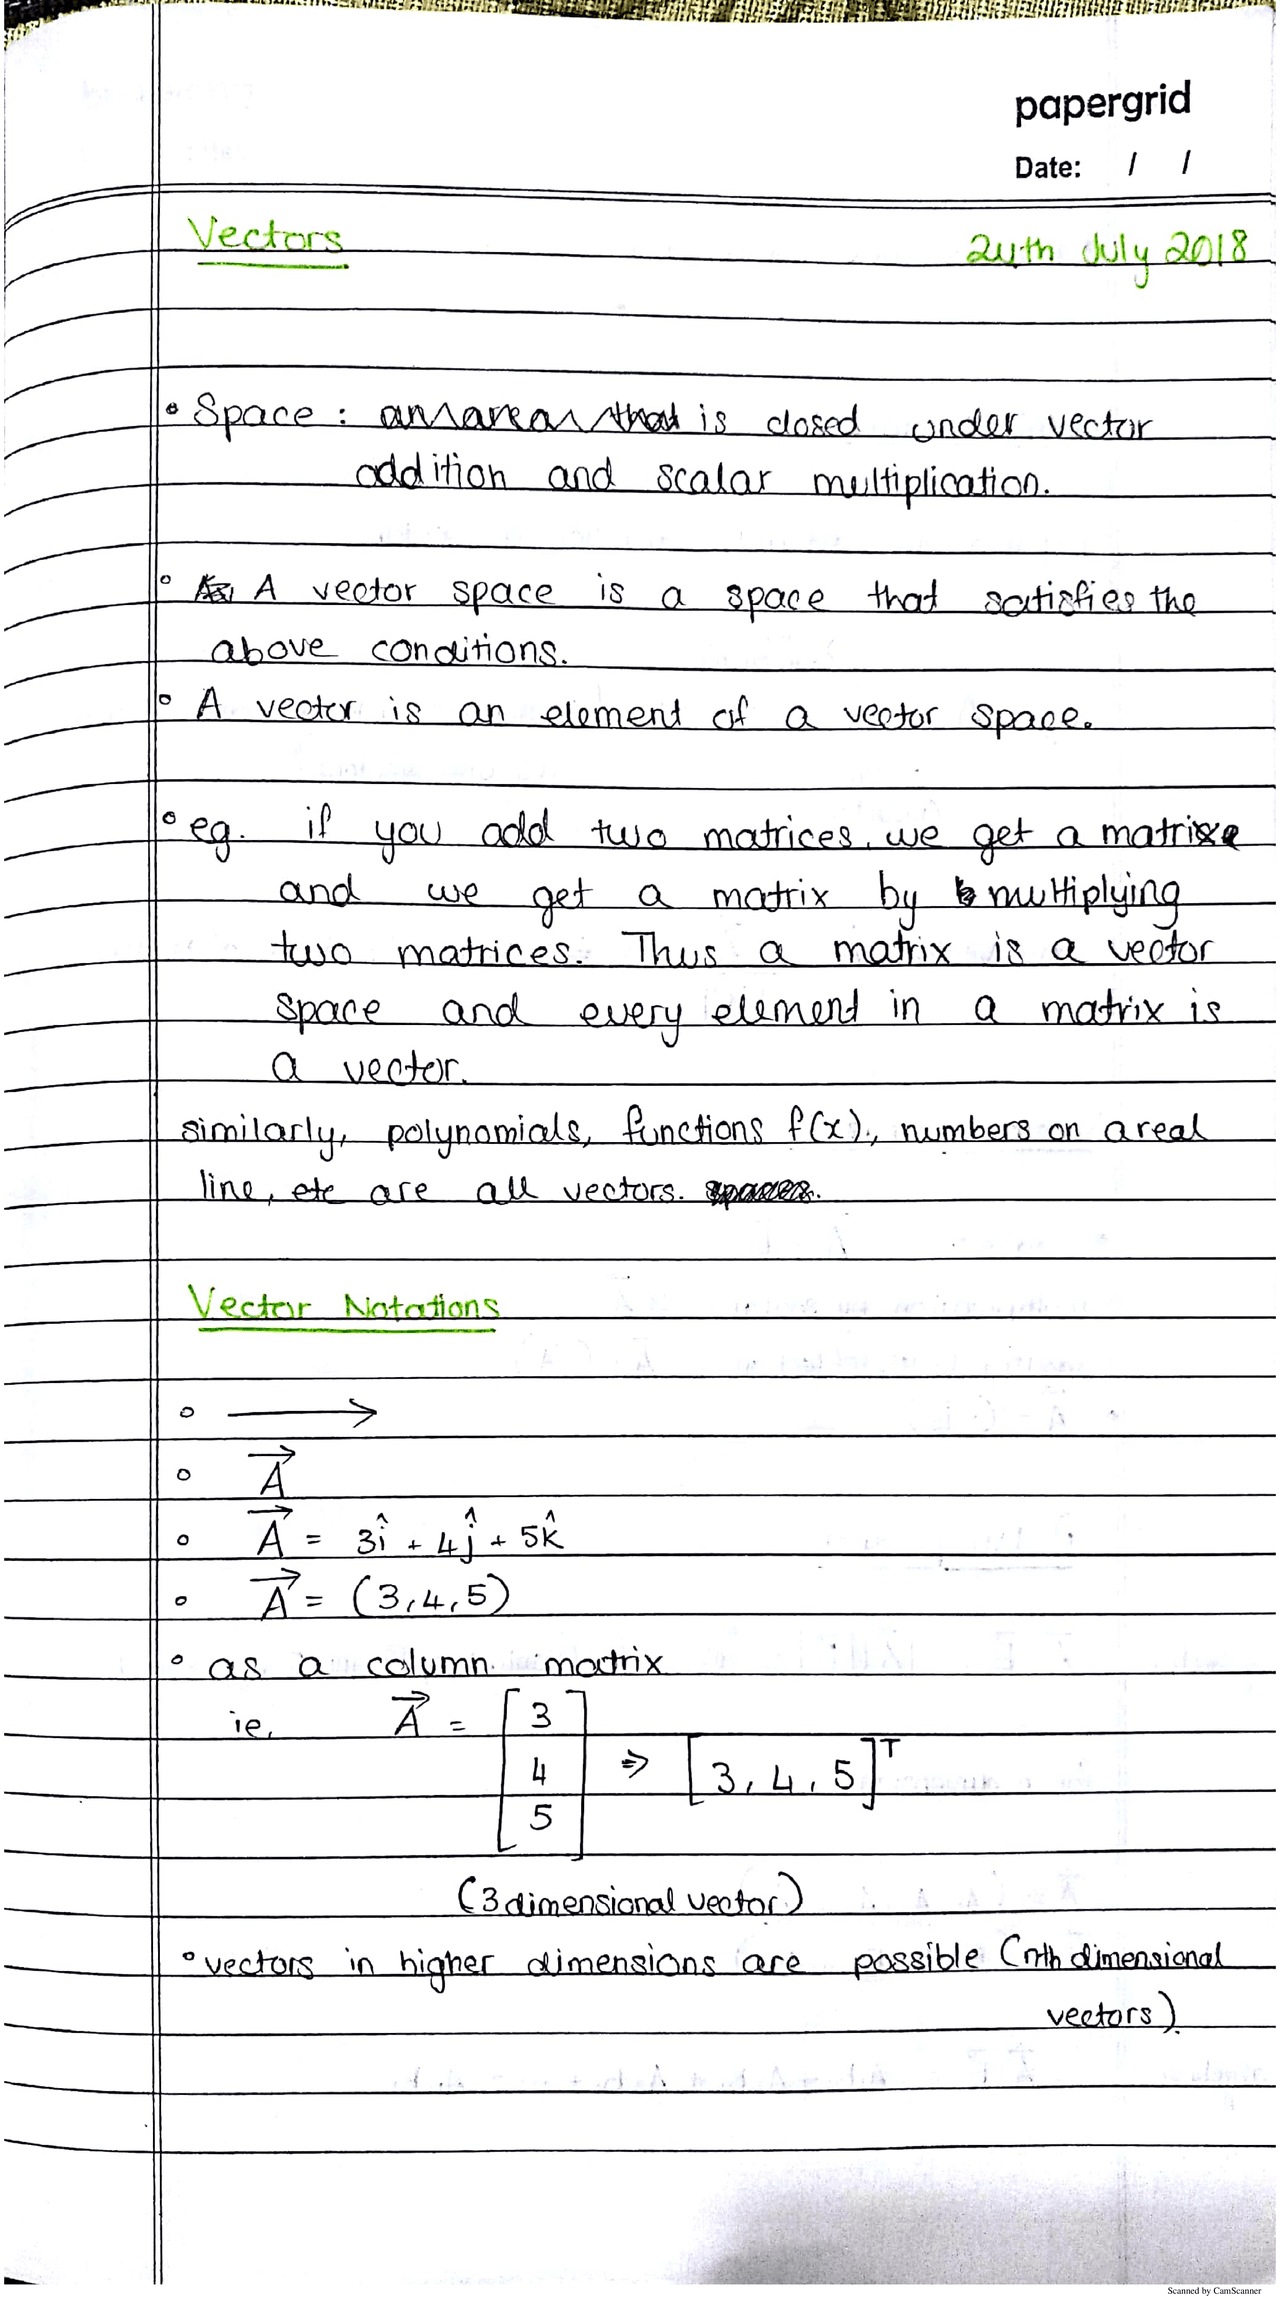 papergrid
Date: / /
Vectors 24th July 2018
• Space : an area that is closed under vector
addition and scalar multiplication.
° A vector space is a space that satisfies the
above conditions.
° A vector is an element of a vector space.
° eg. if you add two matrices, we get a matrix
and we get a matrix by multiplying
two matrices. Thus a matrix is a vector
space and every element in a matrix is
a vector.
similarly, polynomials, functions f(x), numbers on a real
line, etc are all vectors. spaces.
Vector Notations
° ⟶
° A⃗
° A⃗ = 3î + 4ĵ + 5k̂
° A⃗ = (3,4,5)
° as a column matrix
ie. A⃗ = [3
4 ⇒ [3, 4, 5]ᵀ
5]
(3 dimensional vector)
° vectors in higher dimensions are possible (nth dimensional
vectors).
Scanned by CamScanner